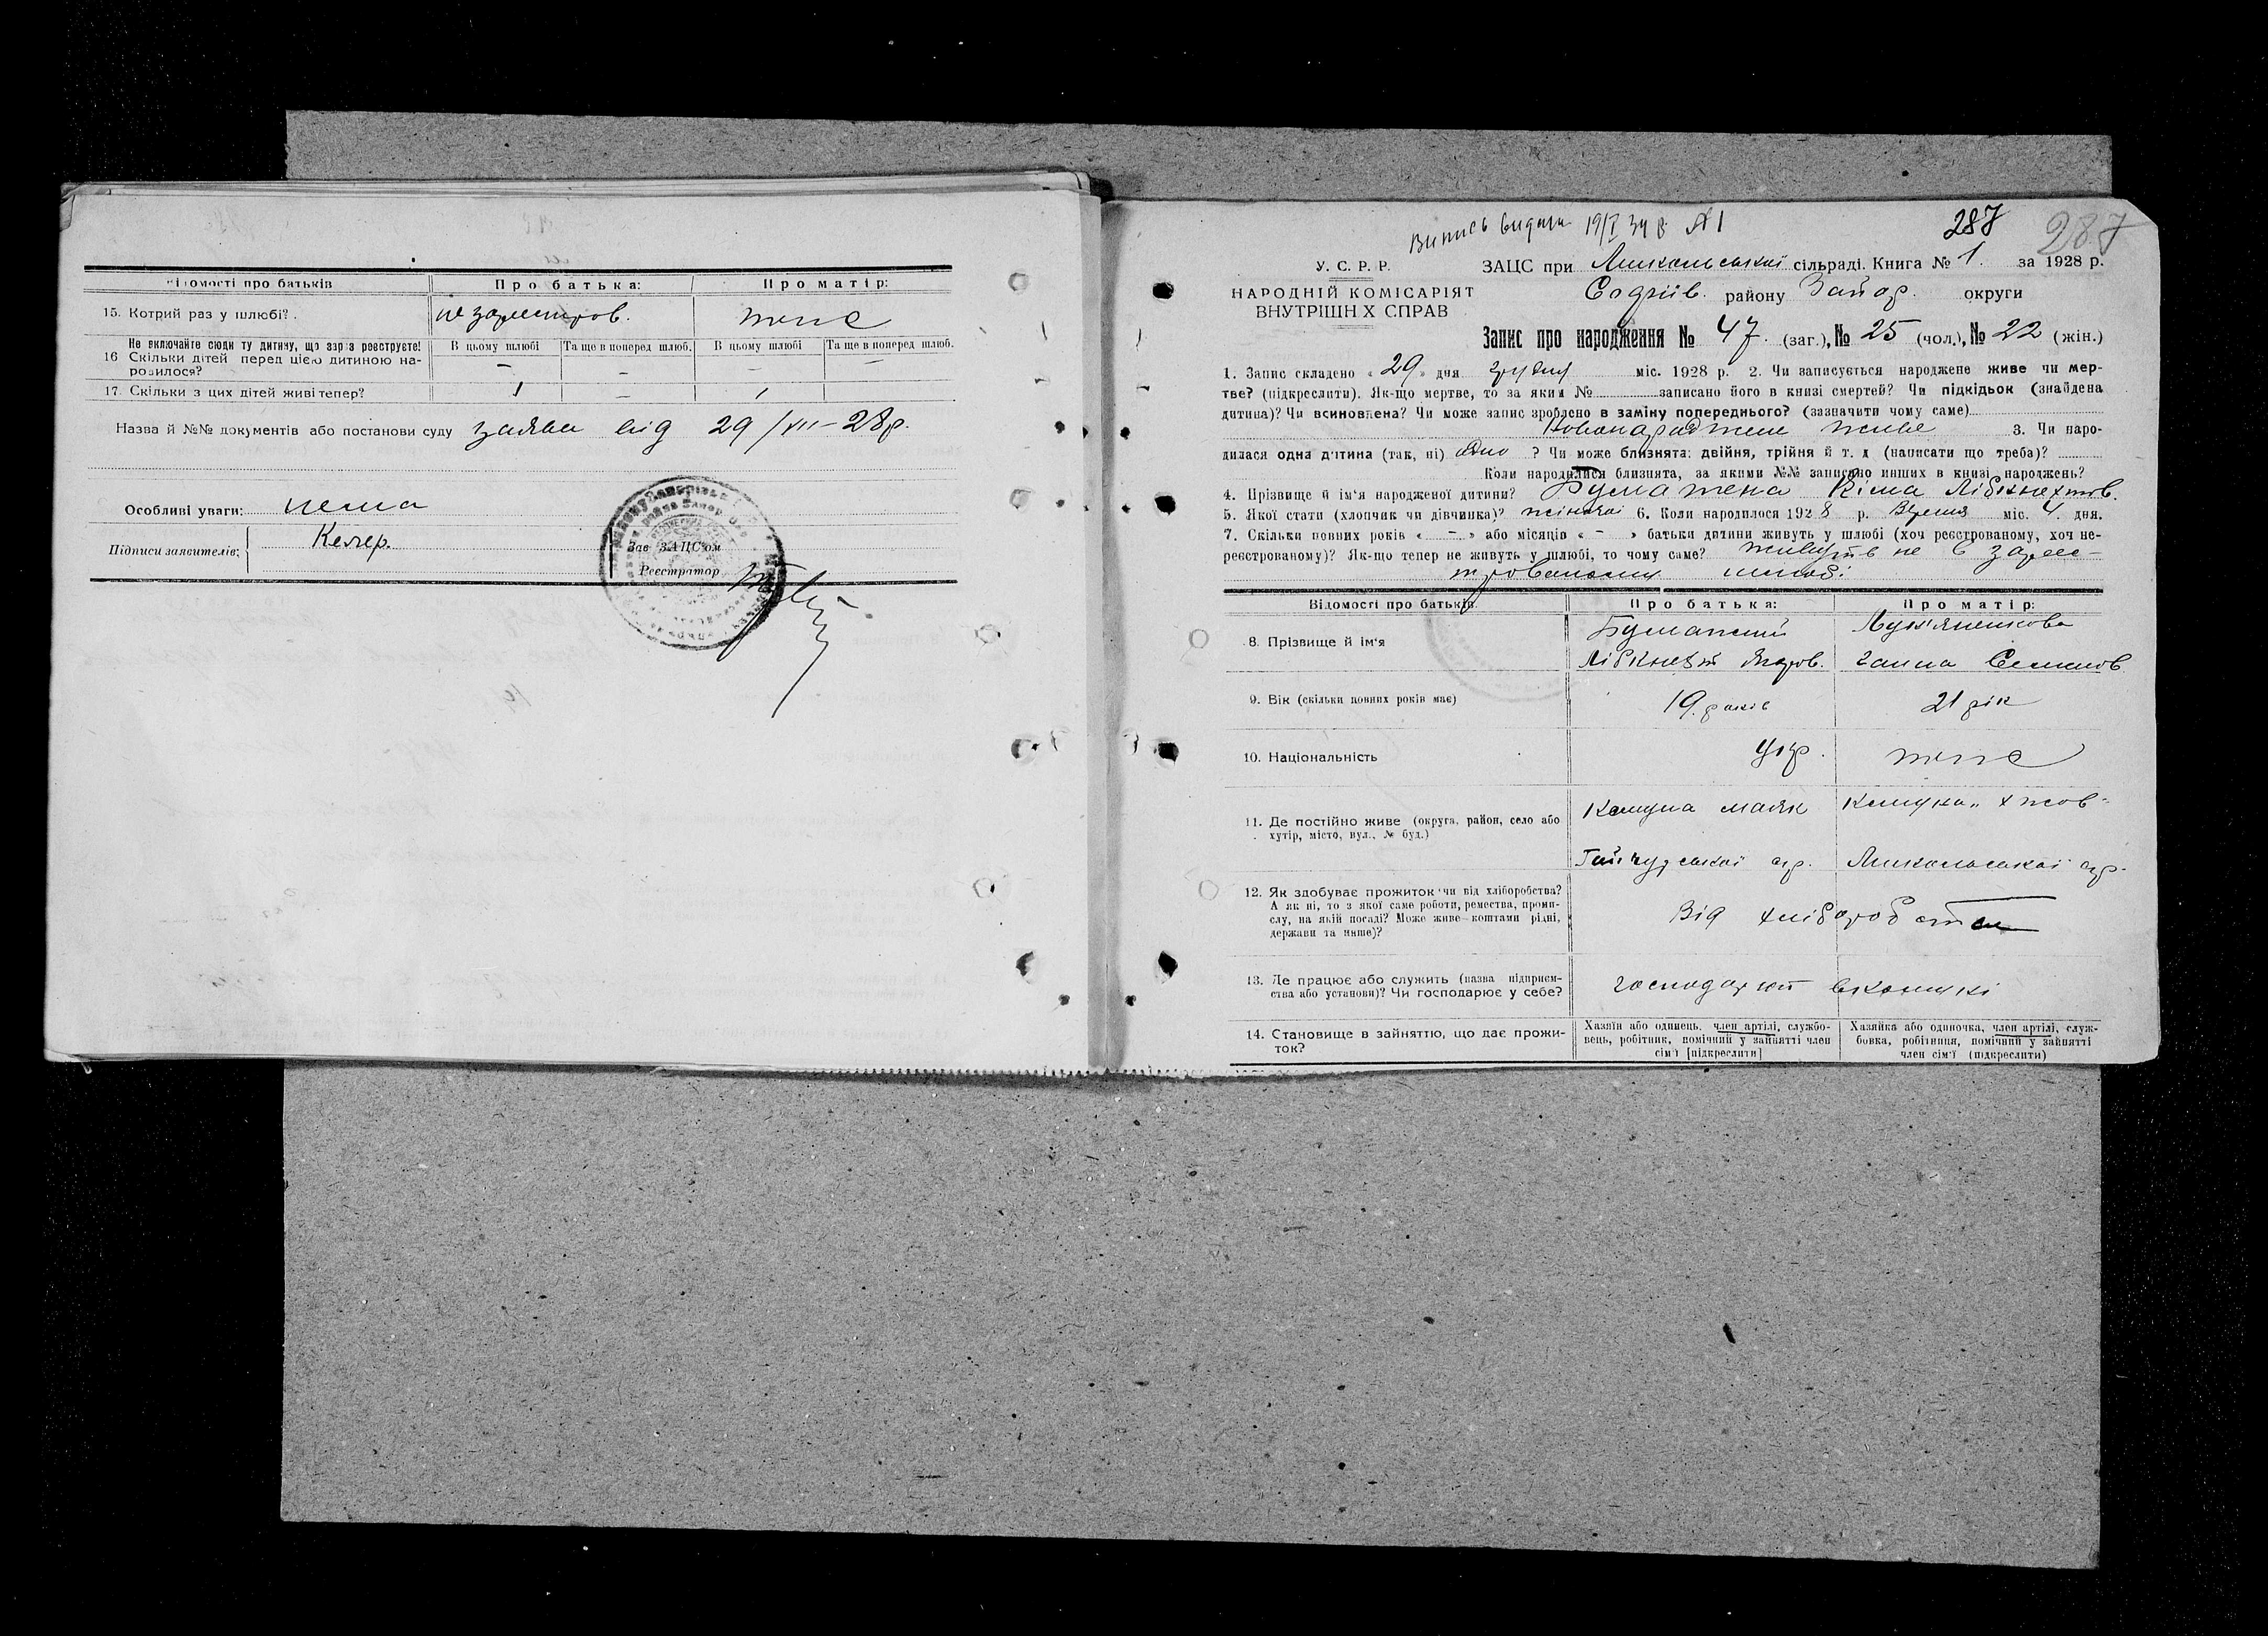 Відомості про батьків
Про батька:
Про матір:
15. Котрий раз у шлюбі?
не зареєстров.
теж
Не включайте сюди ту дитину, що зараз реєструєте!
16 Скільки дітей перед цією дитиною народилося?
В цьому шлюбі
Та ще в поперед шлюб.
В цьому шлюбі
Та ще в поперед шлюб.
–
–
–
–
17. Скільки з цих дітей живі тепер?
1
–
1
Назва й №№ документів або постанови суду заява від 29/XII–28р.
Особливі уваги: нема
Підписи заявителів:
Зав ЗАЦС'ом
Реєстратор
Випись видана 19/I 34 р. № 1
287
287
У. С. Р. Р.
НАРОДНІЙ КОМІСАРІЯТ
ВНУТРІШНІХ СПРАВ
ЗАЦС при Микольській сільраді. Книга № 1. за 1928 р.
Софіїв. району Запор. округи
Запис про народження № 47. (заг.), № 25 (чол.), № 22 (жін.)
1. Запис складено « 29 » дня грудня міс. 1928 р. 2. Чи записується народжене живе чи мер-
тве? (підкреслити). Як-що мертве, то за яким № записано його в книзі смертей? Чи підкідьок (знайдена
дитина)? Чи всиновлена? Чи може запис зроблено в заміну попереднього? (зазначити чому саме)
Новонароджене живе 3. Чи наро-
дилася одна дитина (так, ні) одно ? Чи може близнята: двійня, трійня й т. д (написати що треба)?
Коли народилися близнята, за якими №№ записано инших в книзі народжень?
4. Прізвище й ім'я народженої дитини? Кіма Лібкнехтов.
5. Якої стати (хлопчик чи дівчинка)? жіночої 6. Коли народилося 1928 р. Вересня міс. 4. дня.
7. Скільки повних років « – » або місяців « – » батьки дитини живуть у шлюбі (хоч реєстрованому, хоч не-
реєстрованому)? Як-що тепер не живуть у шлюбі, то чому саме? живуть не в зареєс-
трованому шлюбі
Відомості про батьків
Про батька:
Про матір:
8. Прізвище й ім'я
Лібкнехт
Лук'яненкова
Ганна Семенов
9. Вік (скільки повних років має)
19. років
21 рік
10. Національність
Укр.
теж
11. Де постійно живе (округа, район, село або
хутір, місто, вул., № буд.)
Комуна маяк
Комуна „ Х жов-
Гайчурської с/р.
Микольської с/р.
12. Як здобуває прожиток чи від хліборобства?
А як ні, то з якої саме роботи, ремества, проми-
слу, на якій посаді? Може живе коштами рідні,
держави та инше)?
Від хліборобства
13. Де працює або служить (назва підприєм-
ства або установи)? Чи господарює у себе?
господарют в комуні
14. Становище в зайняттю, що дає прожи-
ток?
Хазяїн або одинець, член артілі, службо-
вець, робітник, помічний у зайнятті член
сім'ї [підкреслити]
Хазяйка або одиночка, член артілі, служ-
бовка, робітниця, помічний у зайнятті
член сім'ї (підкреслити)